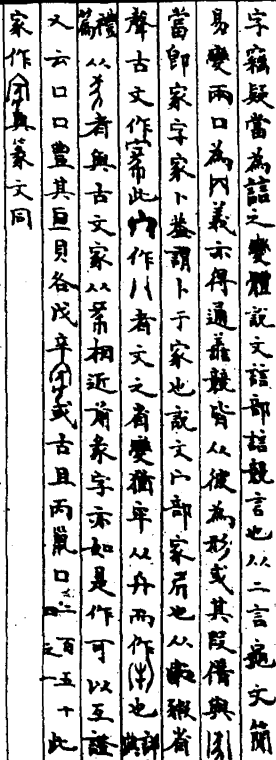 字竊疑當為誩之變體說文誩部誩競言也从二言龜文簡
易變兩口為義亦得通譱競皆从彼為形或其叚借與
當卽家字家卜葢謂卜于家也說文宀部家凥也从豭省
聲古文作此作八者文之省變猶牢从冉而作也詳典
禮篇从豸者與古文家从相近前彖字亦如是作可以互證
又云口口豊其亘貝各戊卒或古且丙鼠口二百五十四之一此
家作與篆文同